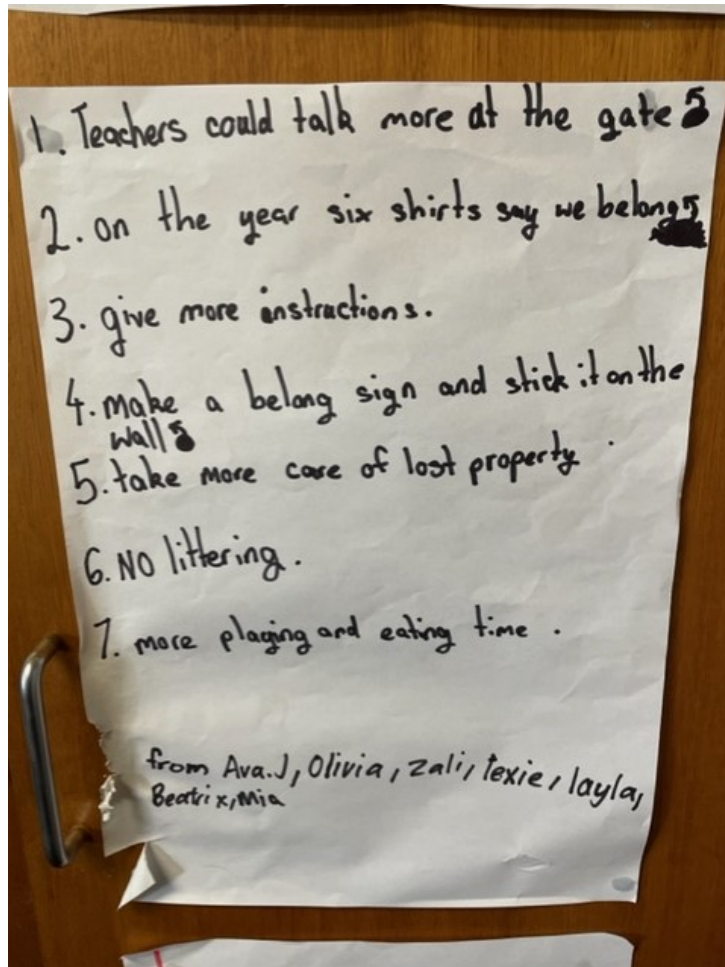 1. Teachers could talk more at the gate
2. on the year six shirts say we belong
3. give more instructions.
4. make a belong sign and stick it on the
wall
5. take more care of lost property .
6. NO littering .
7. more playing and eating time .
from Ava.J, Olivia, Zali, texie, layla,
Beatrix, Mia